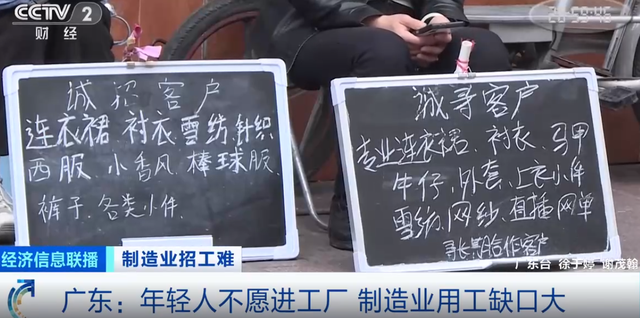 CCTV 2
财经
20:59:45
诚招客户
连衣裙.衬衣雪纺.针织
西服.小香风.棒球服.
裤子.各类小件.
诚哥客户
专业连衣裙、衬衣、马甲
牛仔.外套.上衣小件
雪纺.网纱.直播网单
寻长期合作客户
广东台 徐于婷 谢茂翰
经济信息联播
制造业招工难
广东：年轻人不愿进工厂 制造业用工缺口大